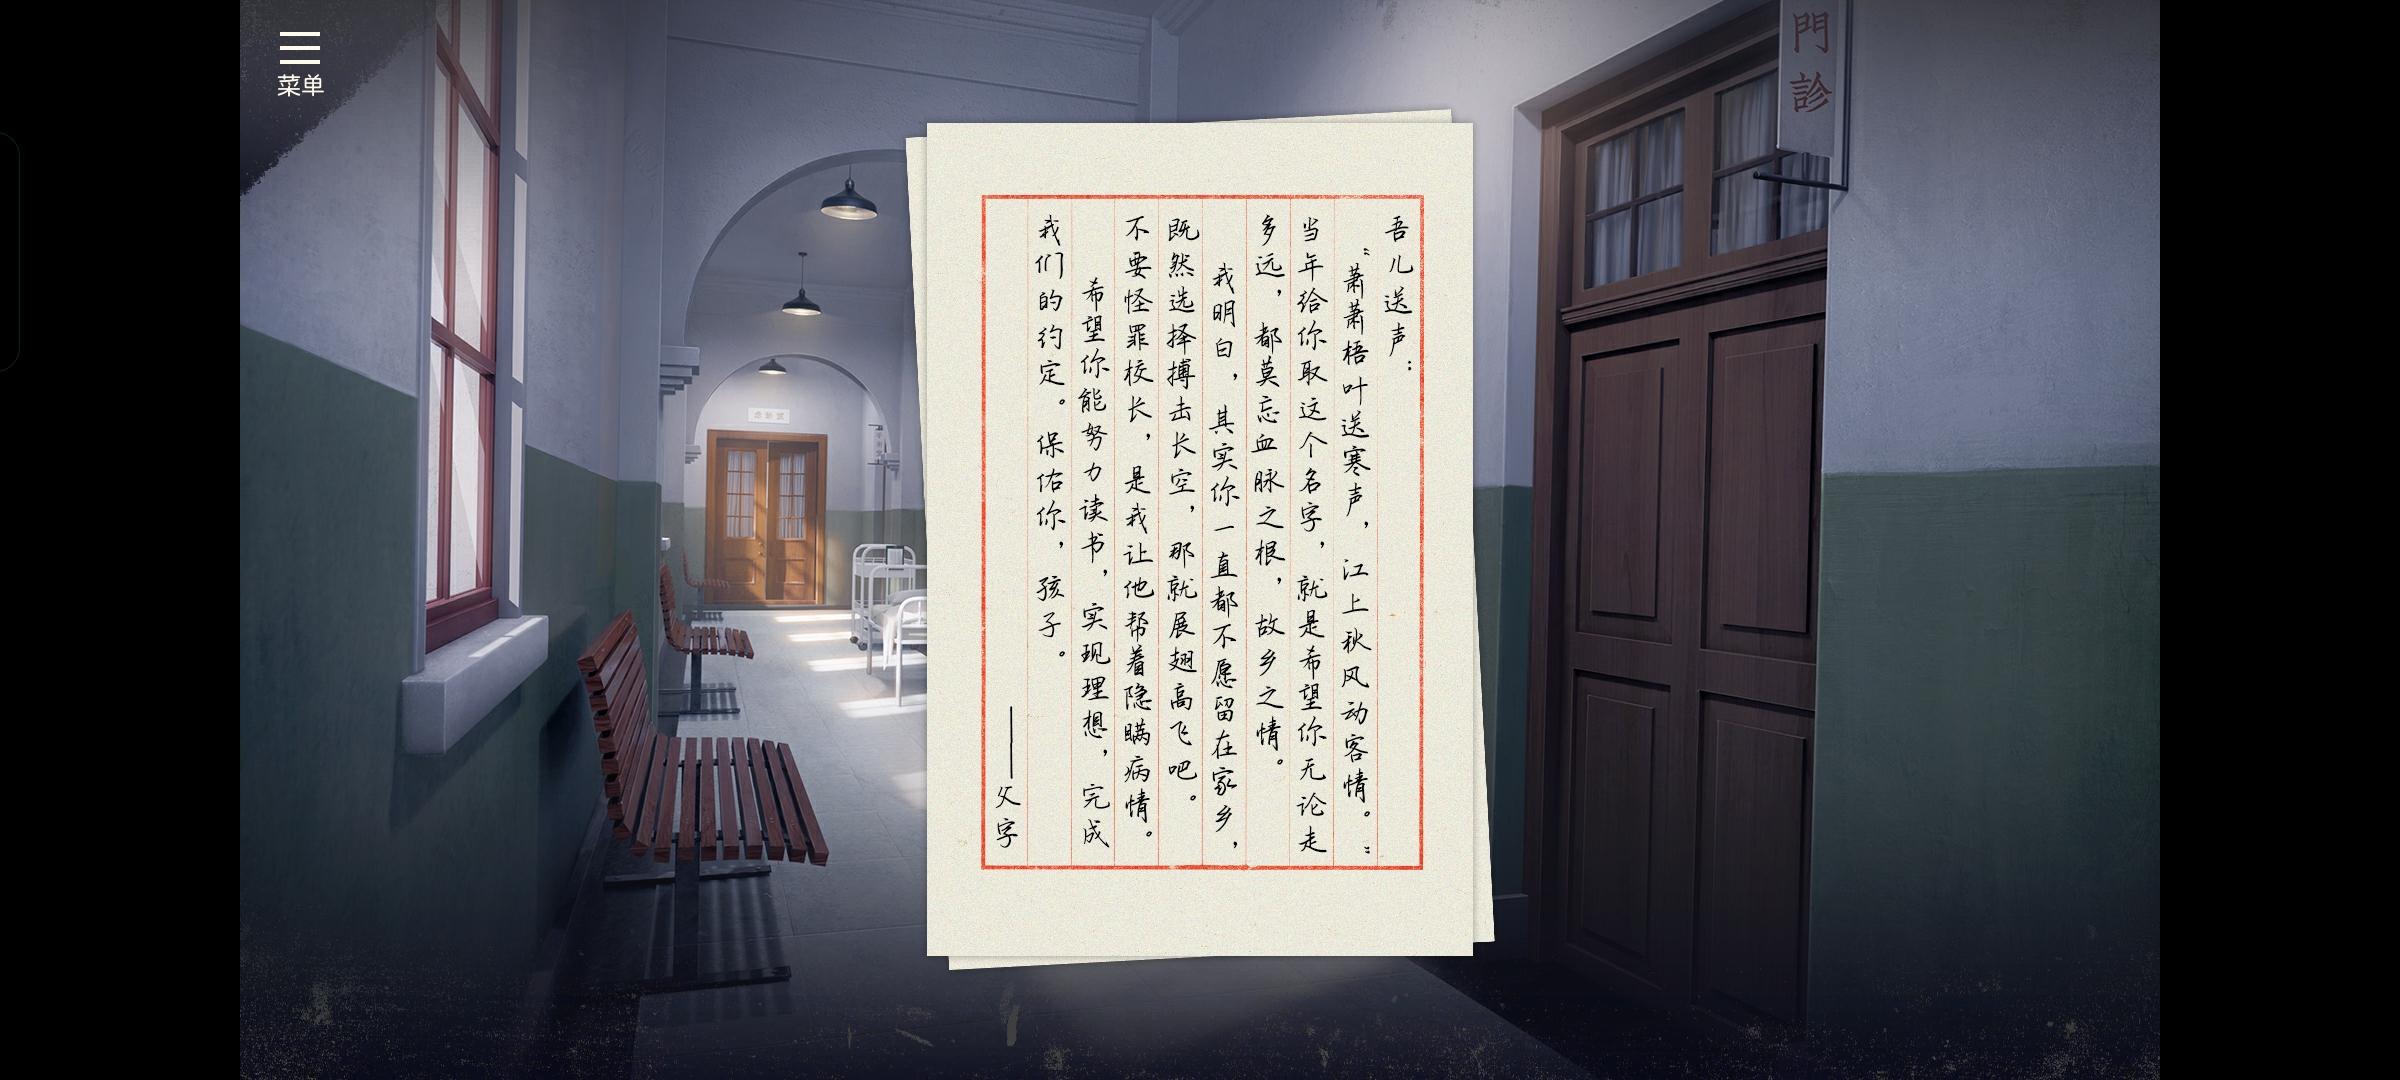 菜单
門診
吾儿送声：
“萧萧梧叶送寒声，江上秋风动客情。”
当年给你取这个名字，就是希望你无论走
多远，都莫忘血脉之根，故乡之情。
我明白，其实你一直都不愿留在家乡，
既然选择搏击长空，那就展翅高飞吧。
不要怪罪校长，是我让他帮着隐瞒病情。
希望你能努力读书，实现理想，完成
我们的约定。保佑你，孩子。
——父字